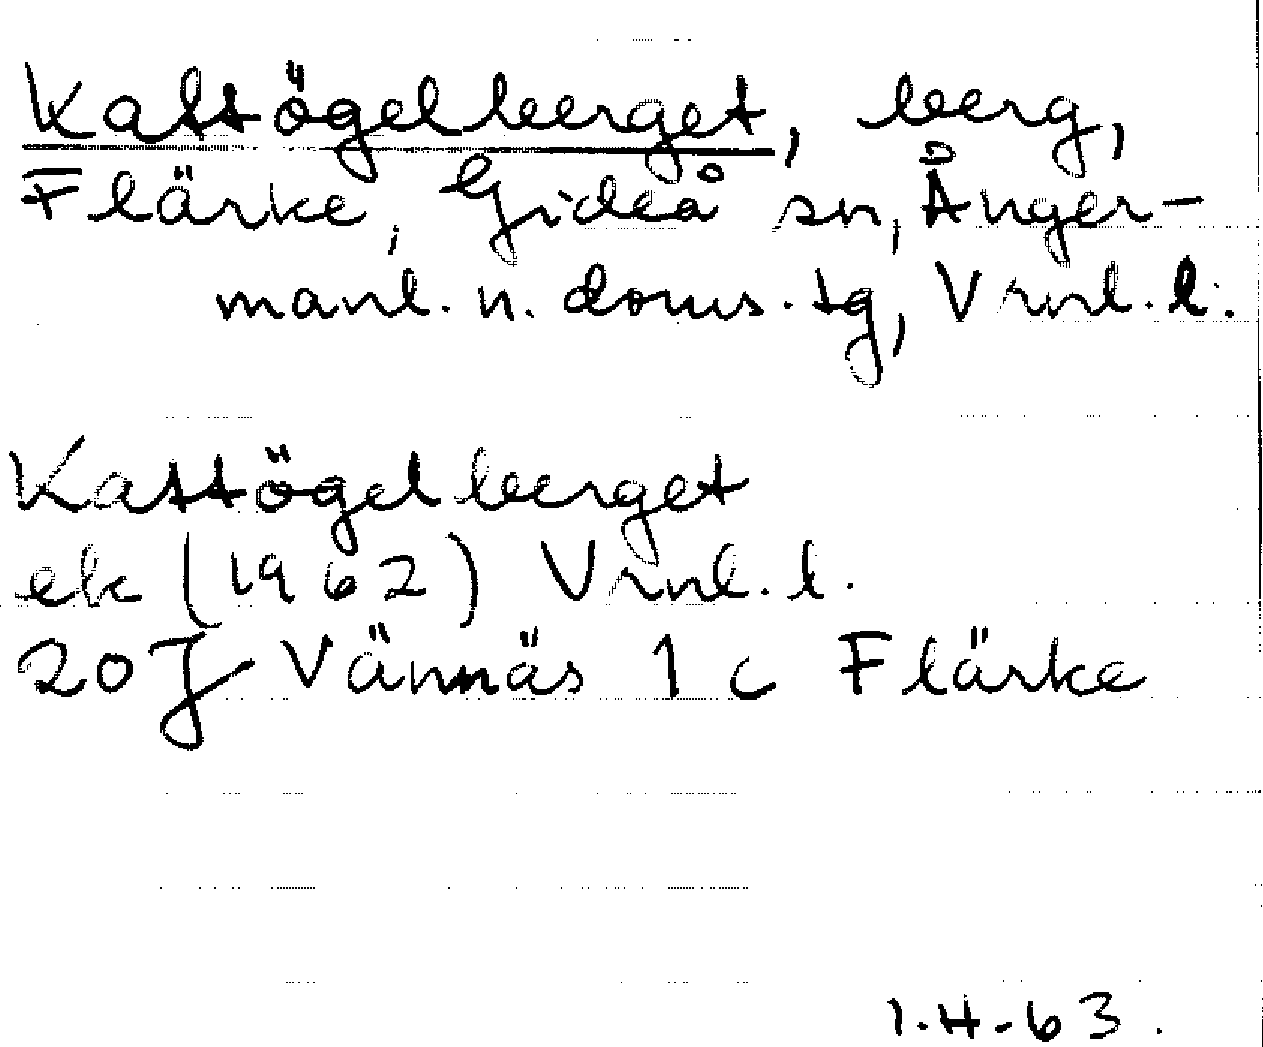 Kattögelberget, berg,
Flärke, Gideå sn, Ånger-
manl. n. doms. tg, Vrnl. l.
Kattögelberget
ek (1962) Vrnl. l.
20 J Vännäs 1 c Flärke
I.H-63.